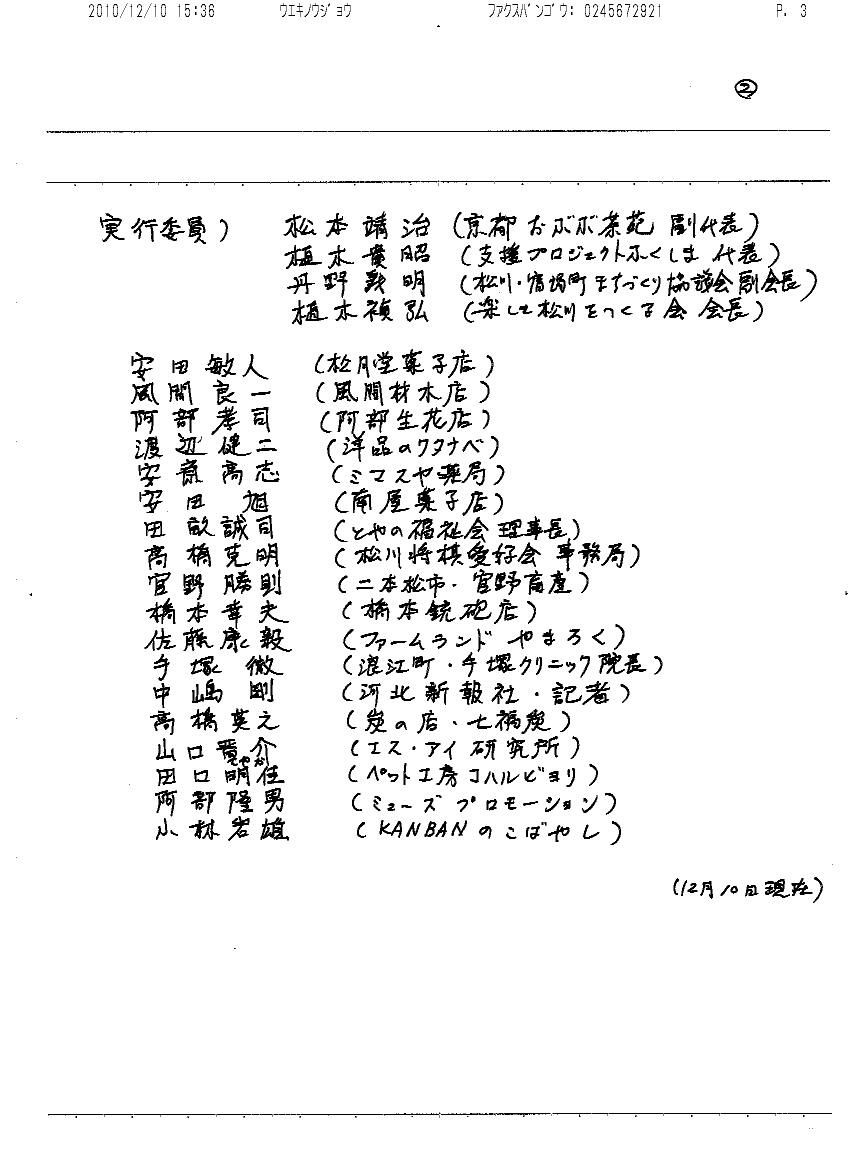 2010/12/10 15:36 ウエキノウジョウ ファクスバンゴウ: 0245672921 P. 3
②
実行委員) 松本靖治 (京都おぶぶ茶苑 副代表)
植木貴昭 (支援プロジェクトふくしま 代表)
丹野 明 (松川・宿場町まちづくり協議会副会長)
植木禎弘 (楽しい松川をつくる会 会長)
安田敏人 (松月堂菓子店)
風間良一 (風間材木店)
阿部孝司 (阿部生花店)
渡辺健二 (洋品のワタナベ)
安斎高志 (ミマスヤ薬局)
安田 旭 (南屋菓子店)
田 誠司 (とやの福祉会理事長)
高橋克明 (松川将棋愛好会 事務局)
官野勝則 (二本松市・官野畜産)
橋本幸夫 (橋本銃砲店)
佐藤康毅 (ファームランド やまろく)
手塚 徹 (浪江町・手塚クリニック院長)
中嶋 剛 (河北新報社・記者)
高橋英之 (炭の店・七福炭)
山口晋介 (エス・アイ研究所)
田口明佳 (ペット工房コハルビヨリ)
阿部隆男 (ミューズプロモーション)
小林岩雄 (KANBANのこばやし)
(12月10日現在)